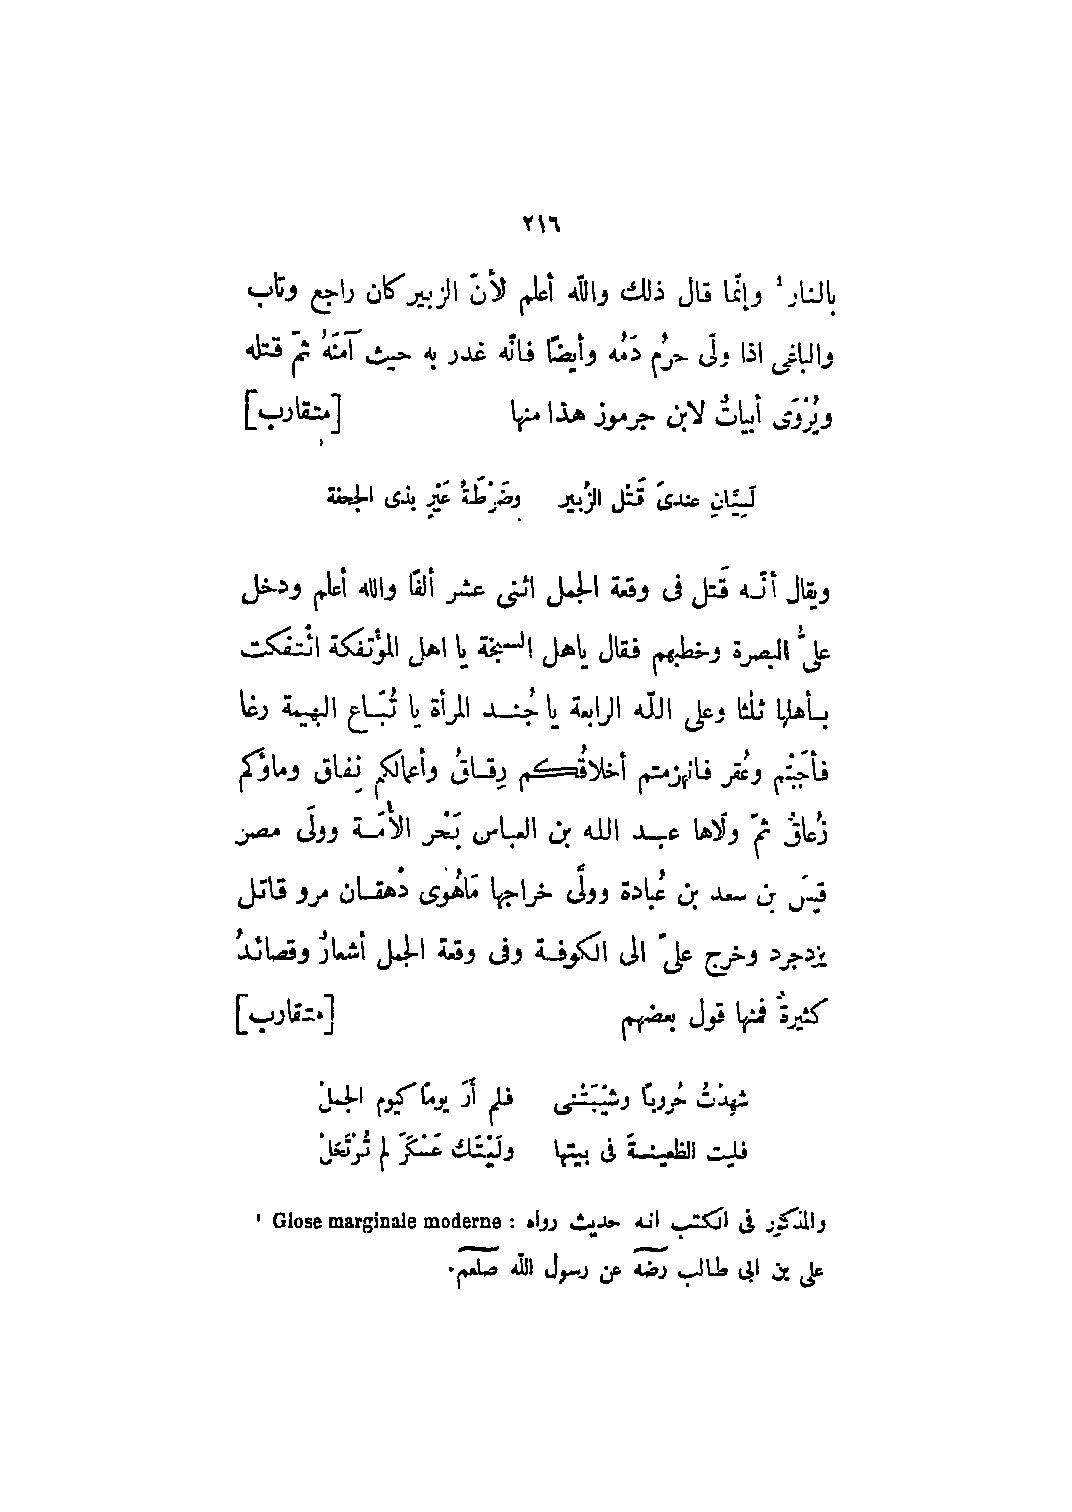 ٢١٦
بالنار¹ وإنّما قال ذلك واللّه أعلم لأنّ الزبير كان راجع وتاب
والباغى اذا ولّى حرُم دَمُه وأيضًا فانّه غدر به حيث آمنَهُ ثمّ قتله
ويُرْوَى أبياتٌ لابن جرموز هذا منها [متقارب]
لَسِيَّانِ عندىَ قَتْل الزُبير وضَرْطَةُ عَيْرٍ بذى الجحفة
ويقال أنّه قَتل فى وقعة الجمل اثنى عشر ألفًا والله أعلم ودخل
علىٌّ البصرة وخطبهم فقال ياهل السبخة يا اهل المؤتفكة ائتفكت
بأهلها ثلثا وعلى اللّه الرابعة يا جُند المرأة يا تُبّاع البهيمة رغا
فأجَبْتُم وعُقر فانهزمتم أخلاقُكم رِقاقُ وأعمالكم نِفاق وماؤكم
زُعاقٌ ثمّ ولّاها عبد الله بن العباس بَحْر الأُمّة وولّى مصر
قيسَ بن سعد بن عُبادة وولَّى خراجها مَاهُوى دْهقان مرو قاتل
يزدجرد وخرج علىّ الى الكوفة وفى وقعة الجمل أشعارٌ وقصائدُ
كثيرةٌ فمنها قول بعضهم [متقارب]
شهِدْتُ حُروبًا وشيَّبَتْنى فلم أَرَ يومًا كيوم الجملْ
فليت الظعينةَ فى بيتها ولَيْتَك عَسْكَرَ لم تُرْتَحَلْ
¹ Glose marginale moderne : والمذكور فى الكتب انه حديث رواه
على بن ابى طالب رضه عن رسول اللّه صلعم.